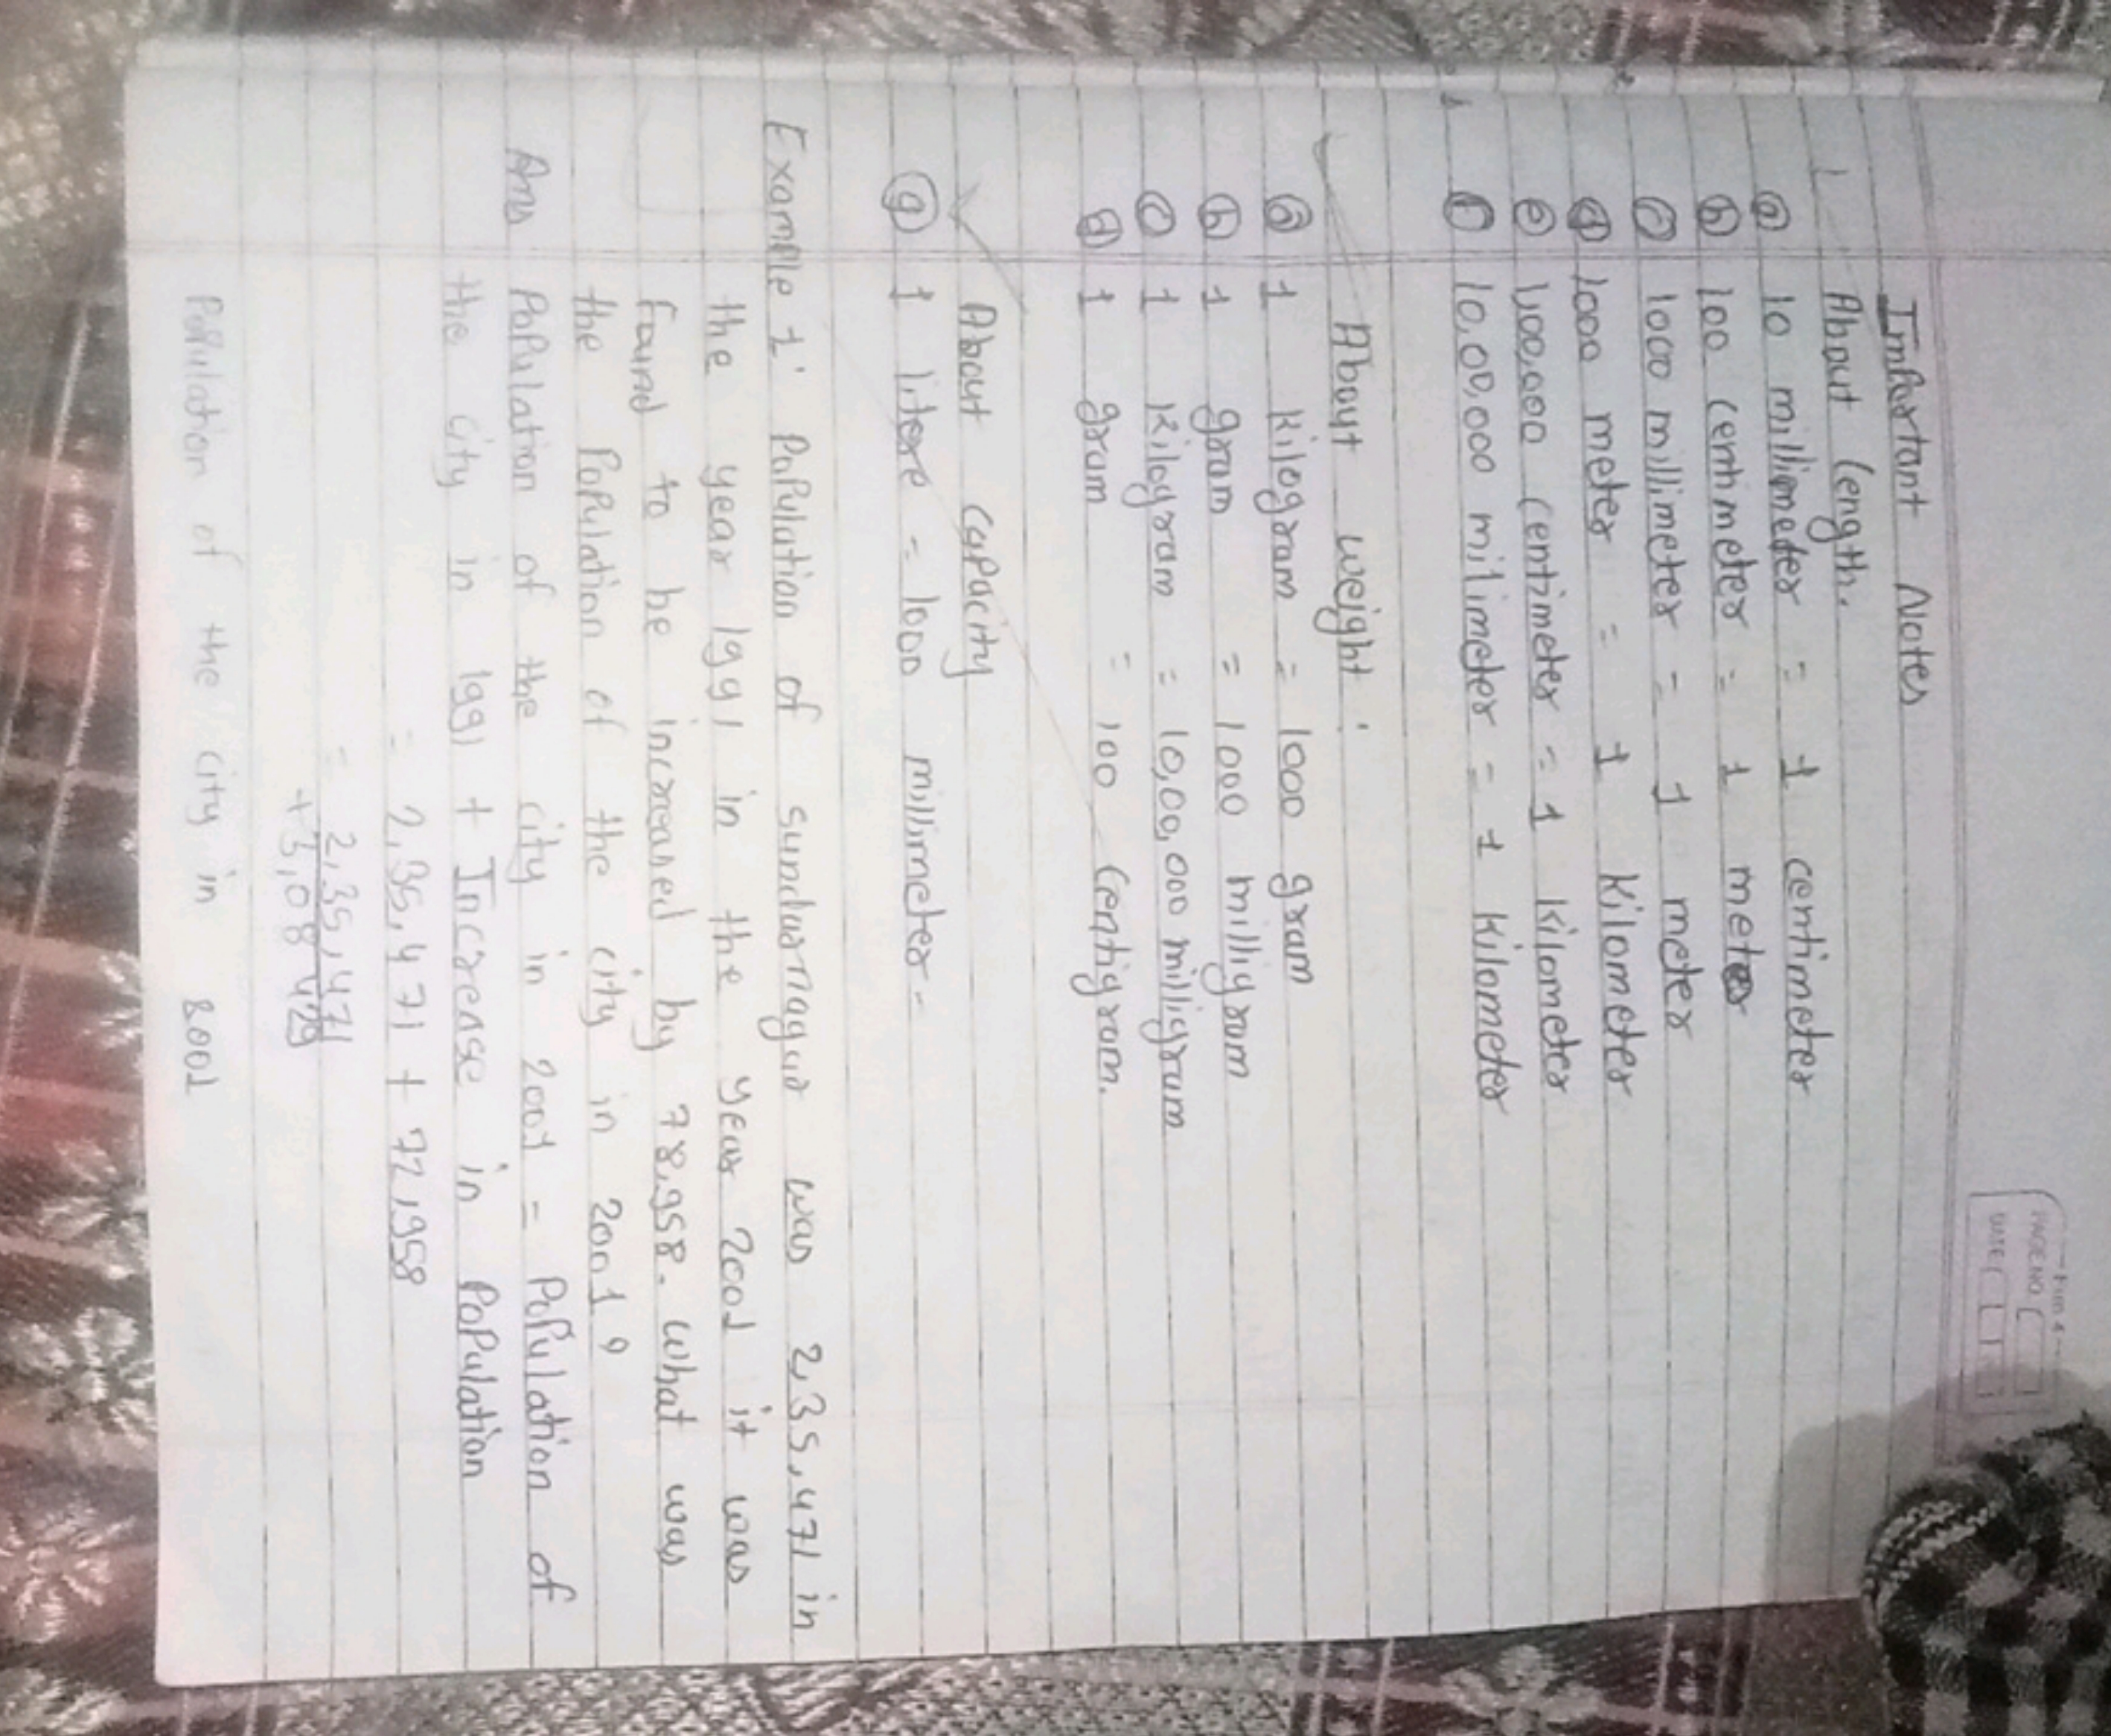 PAGE NO
DATE
Important Notes
About length.
(a) 10 millimeter = 1 centimeter
(b) 100 centimeter = 1 meter
(c) 1000 millimeter = 1 meter
(d) 1000 meter = 1 kilometer
(e) 1,00,000 centimeter = 1 kilometer
(f) 10,00,000 milimeter = 1 kilometer
About weight:
(a) 1 kilogram = 1000 gram
(b) 1 gram = 1000 milligram
(c) 1 kilogram = 10,00,000 milligram
(d) 1 gram = 100 centigram.
About capacity
(g) 1 litere = 1000 millimeter-
Example 1: Population of sundarnagar was 2,35,471 in
the year 1991 in the year 2001 it was
found to be increased by 78,958. what was
the population of the city in 2001?
Ans Population of the city in 2001 = Population of
the city in 1991 + Increase in Population
= 2,35,471 + 72,958
= 2,35,471
+3,08429
Population of the city in 2001